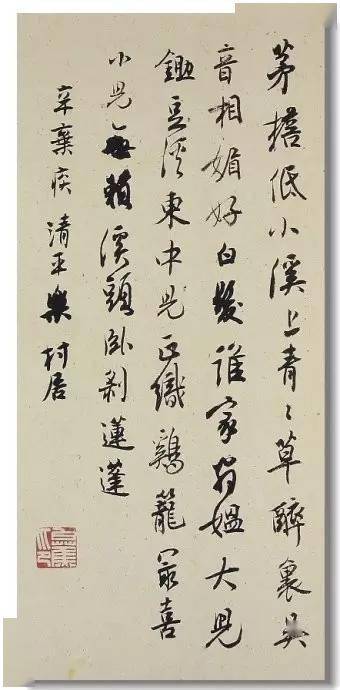 茅檐低小溪上青〻草醉裏吳
音相媚好白髮誰家翁媼大兒
鋤豆溪東中兒正織鷄籠冣喜
小兒無賴溪頭臥剝蓮蓬
辛棄疾 清平樂 村居